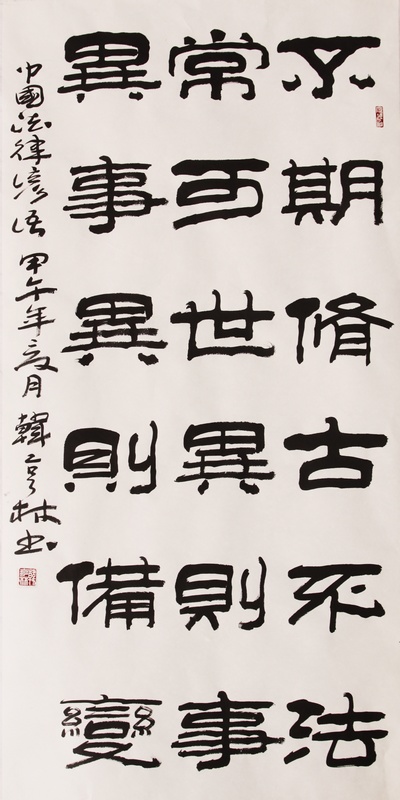 不期脩古不法
常可世異則事
異事異則備變
中國法律諺語 甲午年夏月 韓亨林书